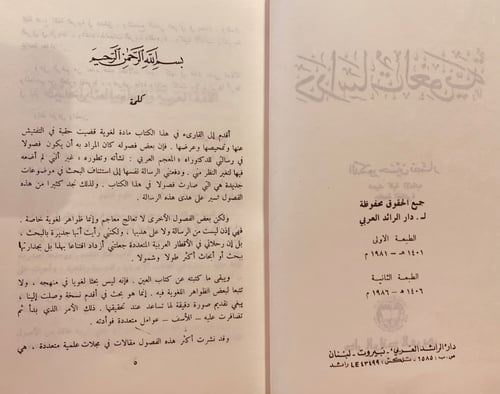 جميع الحقوق محفوظة
لـ. دار الرائد العربي
الطبعة الأولى
١٤٠١ هـ - ١٩٨١ م
الطبعة الثانية
١٤٠٦ هـ - ١٩٨٦ م
دار الرائد العربي - بيروت - لبنان
ص.ب: ٦٥٨٥، تلكس: ٤٣٤٩٩ LE رائد
بسم الله الرحمن الرحيم
كلمة
أقدم إلى القارىء في هذا الكتاب مادة لغوية قضيت حقبة في التفتيش
عنها وتمحيصها وعرضها. فإن بعض فصوله كان المراد به أن يكون فصولا
في رسالتي للدكتوراه «المعجم العربي: نشأته وتطوره» غير أنني لم أضعه
فيها لتغير النظر مني. ودفعتني الرسالة نفسها إلى استئناف البحث في موضوعات
جديدة هي التي صارت فصولا في هذا الكتاب. ولذلك تجد كثيرا من هذه
الفصول تسير على هدى هذه الرسالة.
ولكن بعض الفصول الأخرى لا تعالج معاجم وإنما ظواهر لغوية خاصة.
فهي إذن ليست من الرسالة ولا على هديها، ولكنني رأيت أنها جديرة بالبحث،
بل إن رحلاتي في الأقطار العربية المتعددة جعلتني أزداد اقتناعا بهذا بل بجدارتها
بحث أو أبحاث أكثر طولا وشمولا.
ويبقى ما كتبته عن كتاب العين. فإنه ليس بحثا لغويا في منهجه، ولا
تتبعا لبعض الظواهر اللغوية فيه. إنما هو بحث في أقدم نسخة وصلت إلينا،
يبغي تقديم صورة دقيقة لما تساعد عند تحقيقها. ذلك الأمر الذي بدأ ثم
تضافرت عليه - للأسف - عوامل متعددة فوأدته.
وقد نشرت أكثر هذه الفصول مقالات في مجلات علمية متعددة، هي
٥